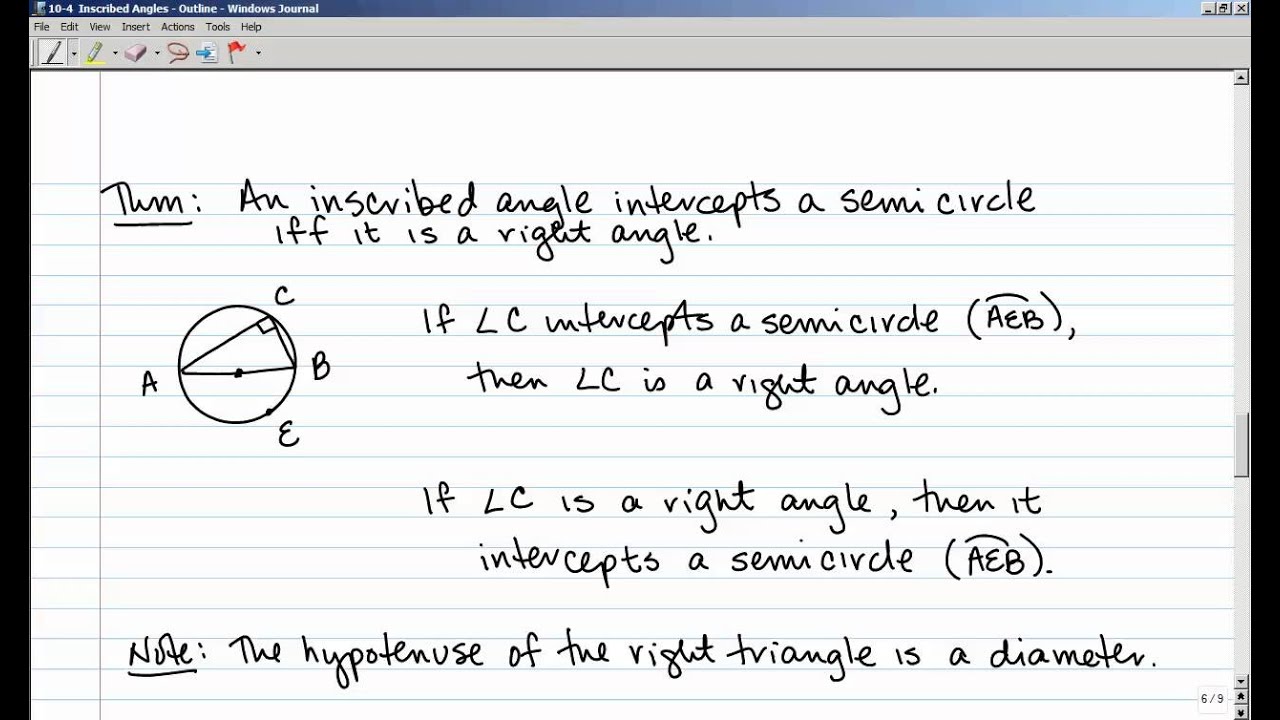 10-4 Inscribed Angles - Outline - Windows Journal
File Edit View Insert Actions Tools Help
Thm: An inscribed angle intercepts a semicircle
iff it is a right angle.
C
A
B
E
If ∠C intercepts a semicircle (A͡EB),
then ∠C is a right angle.
If ∠C is a right angle, then it
intercepts a semicircle (A͡EB).
Note: The hypotenuse of the right triangle is a diameter.
6/9